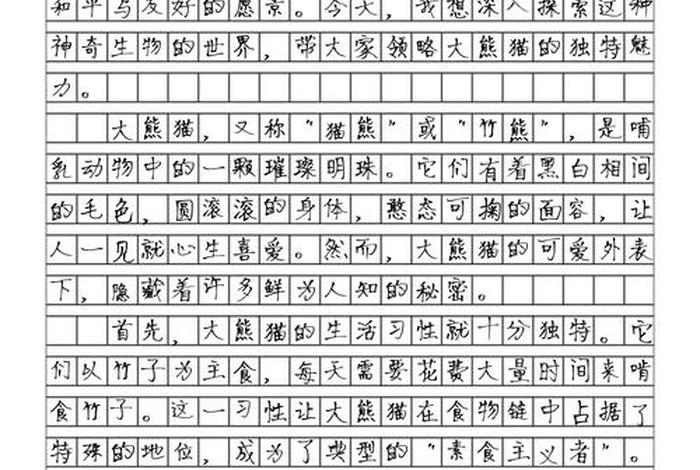 和平与友好的愿景。今天，我想深入探索这种
神奇生物的世界，带大家领略大熊猫的独特魅
力。
大熊猫，又称“猫熊”或“竹熊”，是哺
乳动物中的一颗璀璨明珠。它们有着黑白相间
的毛色，圆滚滚的身体，憨态可掬的面容，让
人一见就心生喜爱。然而，大熊猫的可爱外表
下，隐藏着许多鲜为人知的秘密。
首先，大熊猫的生活习性就十分独特。它
们以竹子为主食，每天需要花费大量时间来啃
食竹子。这一习性让大熊猫在食物链中占据了
特殊的地位，成为了典型的“素食主义者”。